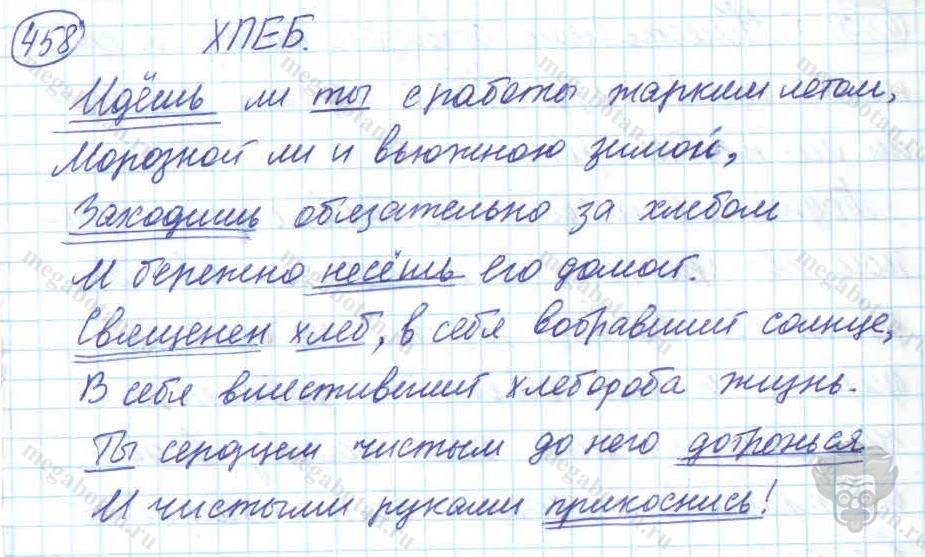 458 ХЛЕБ.
Идёшь ли ты с работы жарким летом,
Морозной ли и вьюжною зимой,
Заходишь обязательно за хлебом
И бережно несёшь его домой.
Священен хлеб, в себя вобравший солнце,
В себя вместивший хлебороба жизнь.
Ты сердцем чистым до него дотронься
И чистыми руками прикоснись!
megabotan.ru